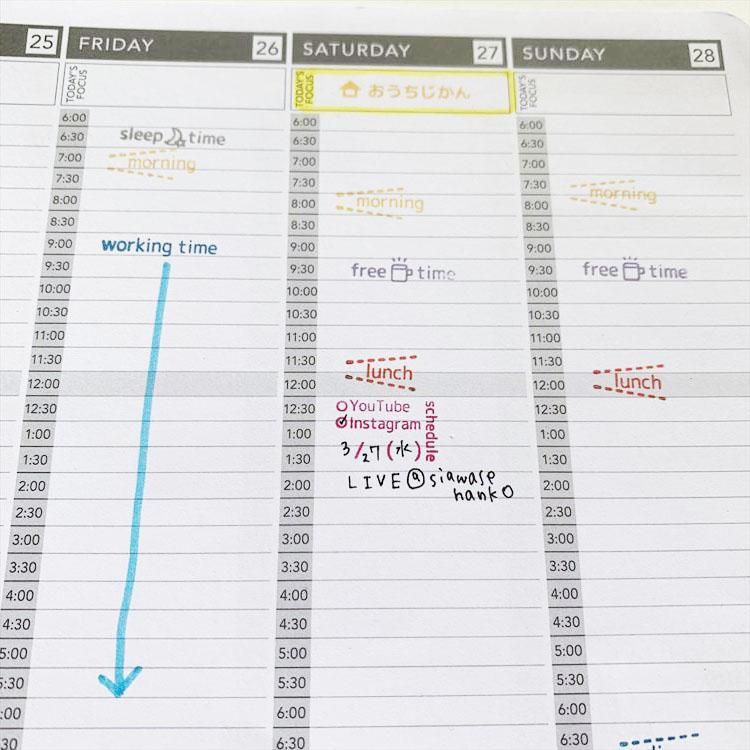 25
FRIDAY 26
TODAY'S FOCUS
6:00
6:30 sleep time
7:00 morning
7:30
8:00
8:30
9:00 working time
9:30
10:00
10:30
11:00
11:30
12:00
12:30
1:00
1:30
2:00
2:30
3:00
3:30
4:00
4:30
5:00
5:30
:00
30
SATURDAY 27
TODAY'S FOCUS
おうちじかん
6:00
6:30
7:00
7:30
8:00 morning
8:30
9:00
9:30 free time
10:00
10:30
11:00
11:30
lunch
12:00
12:30 YouTube
1:00 Instagram
schedule
1:30 3/27(水)
2:00 LIVE@siawase
hanko
2:30
3:00
3:30
4:00
4:30
5:00
5:30
6:00
6:30
SUNDAY 28
TODAY'S FOCUS
6:00
6:30
7:00
7:30 morning
8:00
8:30
9:00
9:30 free time
10:00
10:30
11:00
11:30
12:00 lunch
12:30
1:00
1:30
2:00
2:30
3:00
3:30
4:00
4:30
5:00
5:30
6:00
6:30